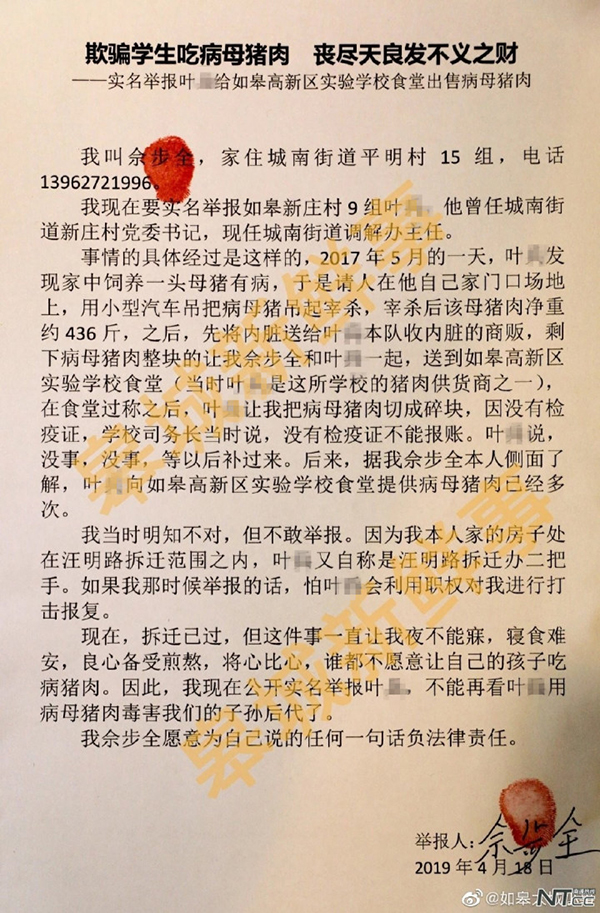 欺骗学生吃病母猪肉 丧尽天良发不义之财
——实名举报叶 给如皋高新区实验学校食堂出售病母猪肉
我叫佘步全，家住城南街道平明村 15 组，电话
13962721996。
我现在要实名举报如皋新庄村 9 组叶 ，他曾任城南街
道新庄村党委书记，现任城南街道调解办主任。
事情的具体经过是这样的，2017 年 5 月的一天，叶 发
现家中饲养一头母猪有病，于是请人在他自己家门口场地
上，用小型汽车吊把病母猪吊起宰杀，宰杀后该母猪肉净重
约 436 斤，之后，先将内脏送给叶 本队收内脏的商贩，剩
下病母猪肉整块的让我佘步全和叶 一起，送到如皋高新区
实验学校食堂（当时叶 是这所学校的猪肉供货商之一），
在食堂过称之后，叶 让我把病母猪肉切成碎块，因没有检
疫证，学校司务长当时说，没有检疫证不能报账。叶 说，
没事，没事，等以后补过来。后来，据我佘步全本人侧面了
解，叶 向如皋高新区实验学校食堂提供病母猪肉已经多
次。
我当时明知不对，但不敢举报。因为我本人家的房子处
在汪明路拆迁范围之内，叶 又自称是汪明路拆迁办二把
手。如果我那时候举报的话，怕叶 会利用职权对我进行打
击报复。
现在，拆迁已过，但这件事一直让我夜不能寐，寝食难
安，良心备受煎熬，将心比心，谁都不愿意让自己的孩子吃
病猪肉。因此，我现在公开实名举报叶 ，不能再看叶 用
病母猪肉毒害我们的子孙后代了。
我佘步全愿意为自己说的任何一句话负法律责任。
举报人：佘步全
2019 年 4 月 18 日
皋城新鲜事
皋城新鲜事
@如皋